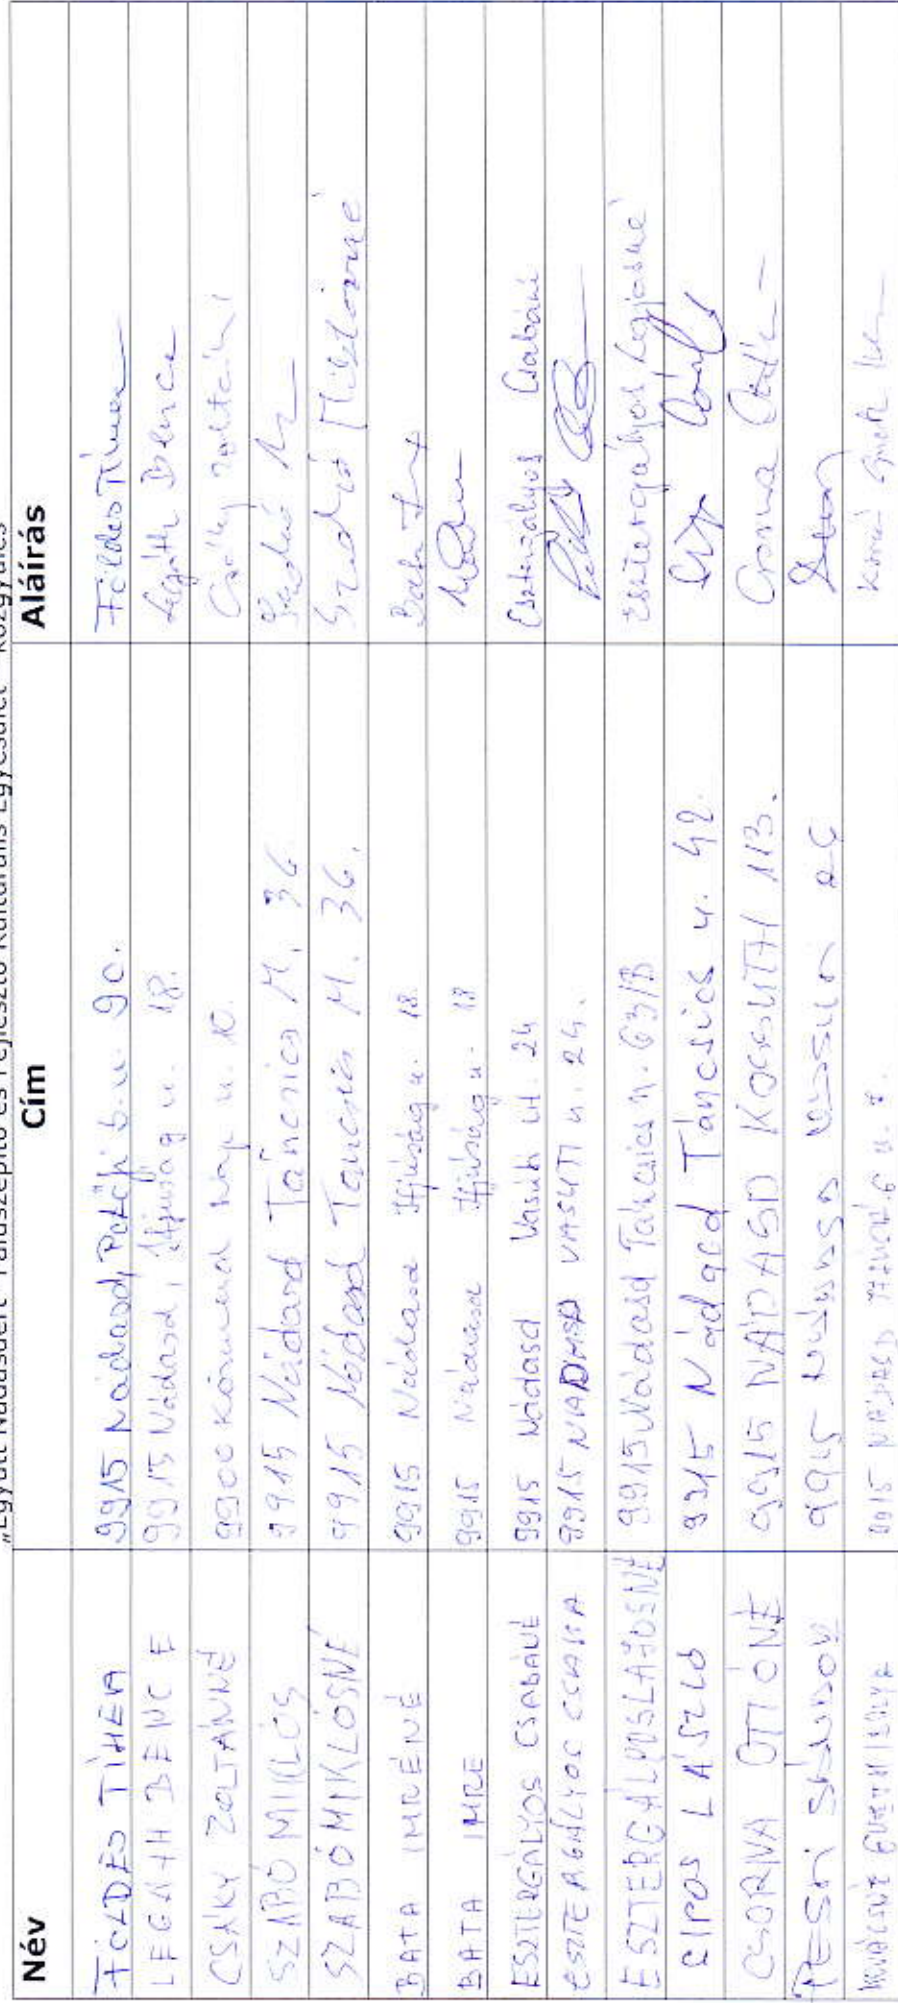 „Együtt Nádasdért" Faluszépítő és Fejlesztő Kulturális Egyesület Közgyűlés
Név Cím Aláírás
FÖLDES TÍMEA 9915 Nádasd, Petőfi S. u. 90. Földes Tímea
LEGÁTH BENCE 9915 Nádasd, Ifjúság u. 18. Legáth Bence
CSÁKY ZOLTÁNNÉ 9900 Körmend u. 10. Csáky Zoltánné
SZABÓ MIKLÓS 9915 Nádasd Táncsics M. 36. Szabó M
SZABÓ MIKLÓSNÉ 9915 Nádasd Táncsics M. 36. Szabó Miklósné
BATA IMRÉNÉ 9915 Nádasd Ifjúság u. 18. Bata
BATA IMRE 9915 Nádasd Ifjúság u. 18
ESZTERGÁLYOS CSABÁNÉ 9915 Nádasd Vasúti út. 24 Esztergályos Csabáné
ESZTERGÁLYOS 9915 NÁDASD VASÚTI u. 24.
ESZTERGÁLYOS LAJOSNÉ 9915 Nádasd Táncsics u. 63/B Esztergályos Lajosné
SIPOS LÁSZLÓ 9915 Nádasd Táncsics u. 42.
CSORNA OTTÓNÉ 9915 NÁDASD KOSSUTH 113. Csorna
PESTI SÁNDOR 9915 Nádasd
9915 NÁDASD u.